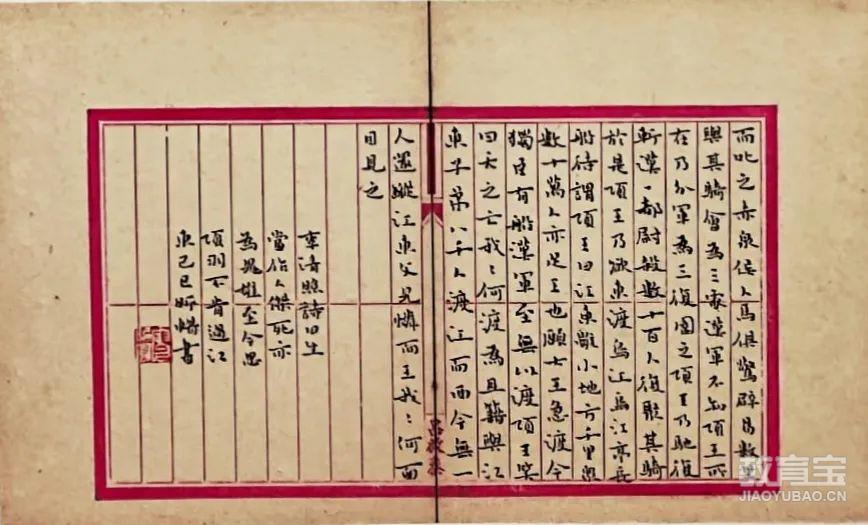 而叱之赤泉侯人馬俱驚辟易數里
與其騎會為三處漢軍不知項王所
在乃分軍為三復圍之項王乃馳復
斬漢一都尉殺數十百人復聚其騎
於是項王乃欲東渡烏江烏江亭長
船待謂項王曰江東雖小地方千里眾
數十萬人亦足王也願大王急渡今
獨臣有船漢軍至無以渡項王笑
曰天之亡我〻何渡為且籍與江
東子弟八千人渡江而西今無一
人還縱江東父兄憐而王我〻何面
目見之
李清照詩曰生
當作人傑死亦
為鬼雄至今思
項羽不肯過江
東己巳書
教育宝
JIAOYUBAO.CN